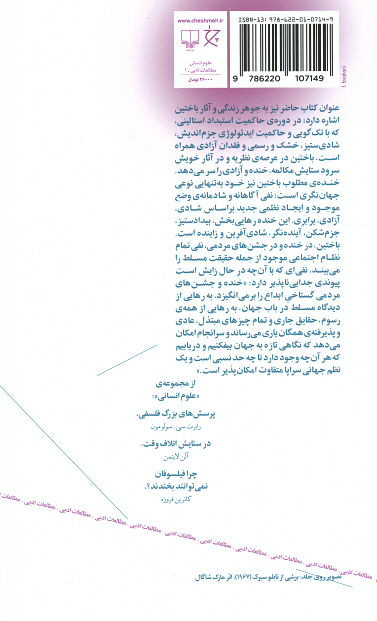 ISBN-13: 978-622-01-0714-9
9 786220 107149
www.cheshmeh.ir
چ
علوم انسانی
مطالعات ادبی - ۱
۳۶۰۰۰ تومان
عنوان کتاب حاضر نیز به جوهر زندگی و آثار باختین
اشاره دارد: در دوره‌ی حاکمیت استبداد استالینی،
که با تک‌گویی و حاکمیت ایدئولوژی جزم‌اندیش،
شادی‌ستیز، خشک و رسمی و فقدان آزادی همراه
است. باختین در عرصه‌ی نظریه و در آثار خویش
سرود ستایش مکالمه، خنده و آزادی را سر می‌دهد.
خنده‌ی مطلوب باختین نیز خود به‌تنهایی نوعی
جهان‌نگری است: نفی آگاهانه و شادمانه‌ی وضع
موجود و ایجاد نظمی جدید براساس شادی،
آزادی، برابری. این خنده رهایی‌بخش، بیدادستیز،
جزم‌شکن، آینده‌نگر، شادی‌آفرین و زاینده است.
باختین، در خنده و در جشن‌های مردمی، نفی تمام
نظام اجتماعی موجود از جمله حقیقت مسلط را
می‌بیند، نفی‌ای که با آن‌چه در حال زایش است
پیوندی جدایی‌ناپذیر دارد: «خنده و جشن‌های
مردمی گستاخی ابداع را برمی‌انگیزد، به رهایی از
دیدگاه مسلط در باب جهان، به رهایی از همه‌ی
رسوم، حقایق جاری و تمام چیزهای مبتذل، عادی
و پذیرفته‌ی همگان یاری می‌رساند و سرانجام امکان
می‌دهد که نگاهی تازه به جهان بیفکنیم و دریابیم
که هر آن‌چه وجود دارد تا چه حد نسبی است و یک
نظم جهانی سراپا متفاوت امکان‌پذیر است.»
از مجموعه‌ی
«علوم انسانی»:
پرسش‌های بزرگ فلسفی،
رابرت سی. سولومون
در ستایش اتلاف وقت،
آلن لایتمن
چرا فیلسوفان
نمی‌توانند بخندند؟،
کاترین فروزه
مطالعات ادبی . مطالعات ادبی . مطالعات ادبی . مطالعات ادبی . مطالعات ادبی . مطالعات ادبی . مطالعات ادبی . مطالعات ادبی . مطالعات ادبی
تصویر روی جلد: برشی از تابلو سیرک (۱۹۶۷)، اثر مارک شاگال